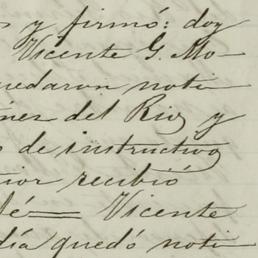 s y firmó: doy
Vicente G. Mo-
quedaron noti
del Rio, y
de instructivo
rior recibió
fé= Vicente
día quedó noti